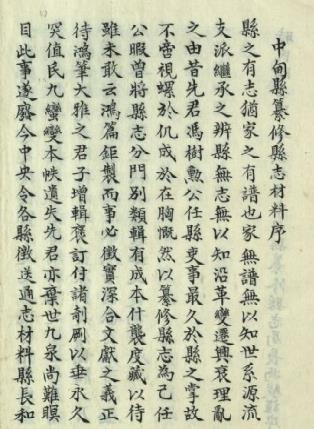 中甸縣纂修縣志材料序
縣之有志猶家之有譜也家無譜無以知世系源流
支派繼承之辨縣無志無以知沿革變遷興衰理亂
之由昔先君馮樹勳公任縣吏事最久於縣之掌故
不啻視螺於仉成於在胸慨然以纂修縣志為己任
公暇曾將縣志分門別類輯有成本什襲度藏以待
雖未敢云鴻篇鉅製而事必徵實深合文獻之義正
待鴻筆大雅之君子增輯裒訂付諸剞劂以垂永久
突值民九蠻變本帙遺失先君亦棄世九泉尚難瞑
目此事遂廢今中央令各縣徵送通志材料縣長和